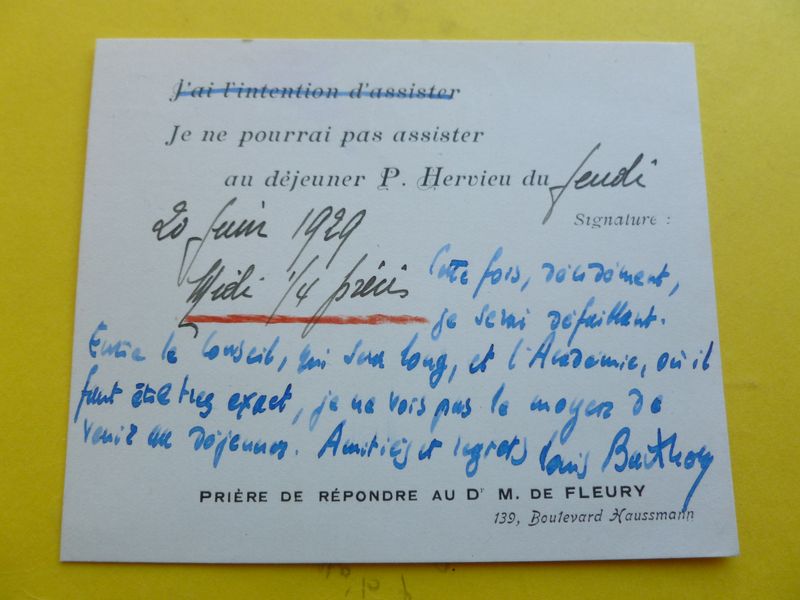 J'ai l'intention d'assister
Je ne pourrai pas assister
au déjeuner P. Hervieu du Jeudi
Signature :
20 Juin 1929
Midi 1/4 précis
Cette fois, décidément,
je serai défaillant.
Entre le Conseil, qui sera long, et l'Académie, où il
faut être très exact, je ne vois pas le moyen de
venir au déjeuner. Amitiés et regrets Louis Barthou
PRIÈRE DE RÉPONDRE AU Dr M. DE FLEURY
139, Boulevard Haussmann